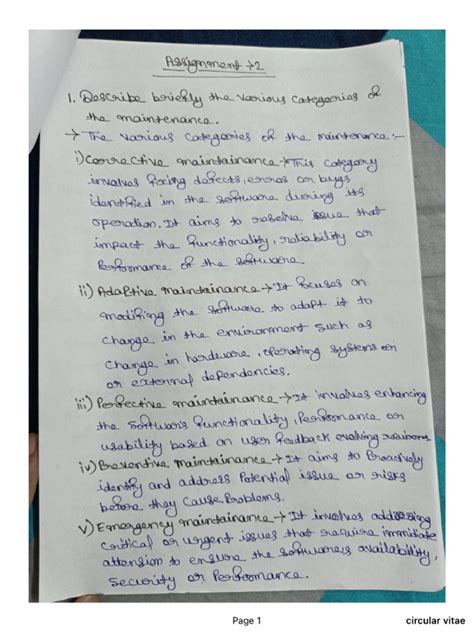 Assignment → 2
1. Describe briefly the various categories of
the maintenance.
→ The various categories of the maintenance :-
i) corrective maintainance → This category
involves fixing defects, erros or bugs
identified in the software during its
operation. It aims to resolve issue that
impact the functionality, reliability or
Performance of the software
ii) Adaptive maintainance → It focuses on
modifing the software to adapt it to
change in the environment such as
change in hardware, operating systems or
or external dependencies.
iii) Perfective maintainance → It involves enhancing
the software's functionality, Performance or
usability based on user feedback evolving
iv) Preventive maintainance → It aims to Proactively
identify and address Potential issue or risks
before they cause Problems.
v) Emergency maintainance → It involves addressing
critical or urgent issues that require immidiate
attention to ensure the softwares availability,
security or Performance.
Page 1
circular vitae